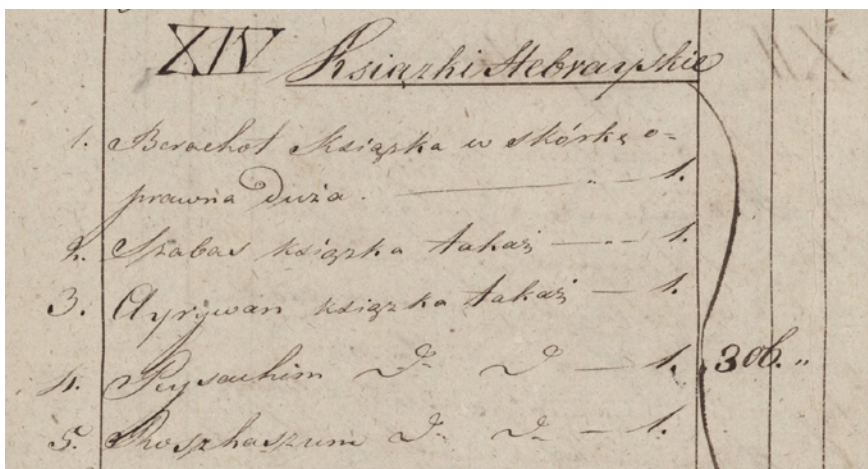 XIV Książki Hebrayskie
1. Berachot książka w skórkę o=
prawna duża. — „ — 1.
2. Szabas książka takaż — „ — 1.
3. Ayrywan książka takaż — 1.
4. Peysachim D. D — 1. 306. „
5. Roszhaszum D. D. — 1.